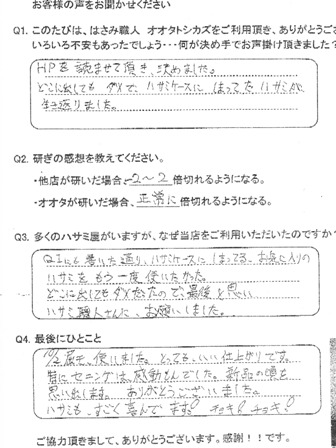 お客様の声をお聞かせください
Q1. このたびは、はさみ職人 オオタトシカズをご利用頂き、ありがとうご
いろいろ不安もあったでしょう・・・何が決め手でお声掛け頂きました?
HPを読ませて頂き、決めました。
どこに出しても ダメで、ハサミケースに はまってた ハサミAが
生き返りました。
Q2. 研ぎの感想を教えてください。
・他店が研いだ場合、2~2 倍切れるようになる。
・オオタが研いだ場合、正常に 倍切れるようになる。
Q3. 多くのハサミ屋がいますが、なぜ当店をご利用いただいたのですか
Q1にも書いた通り、ハサミケースに はまってる お気に入りの
ハサミを もう一度 使いたかった。
どこに出しても ダメだったので、最後と思い
ハサミ職人さんに、お願いしました。
Q4. 最後にひとこと
使いました。とっても、いい仕上がりです。
特にセニングは感動もんでした。新品の頃を
思い出します。ありがとうございました。
ハサミも、すごく喜んでます! チョキ! チョキ!
ご協力頂きまして、ありがとうございます。感謝!!です。